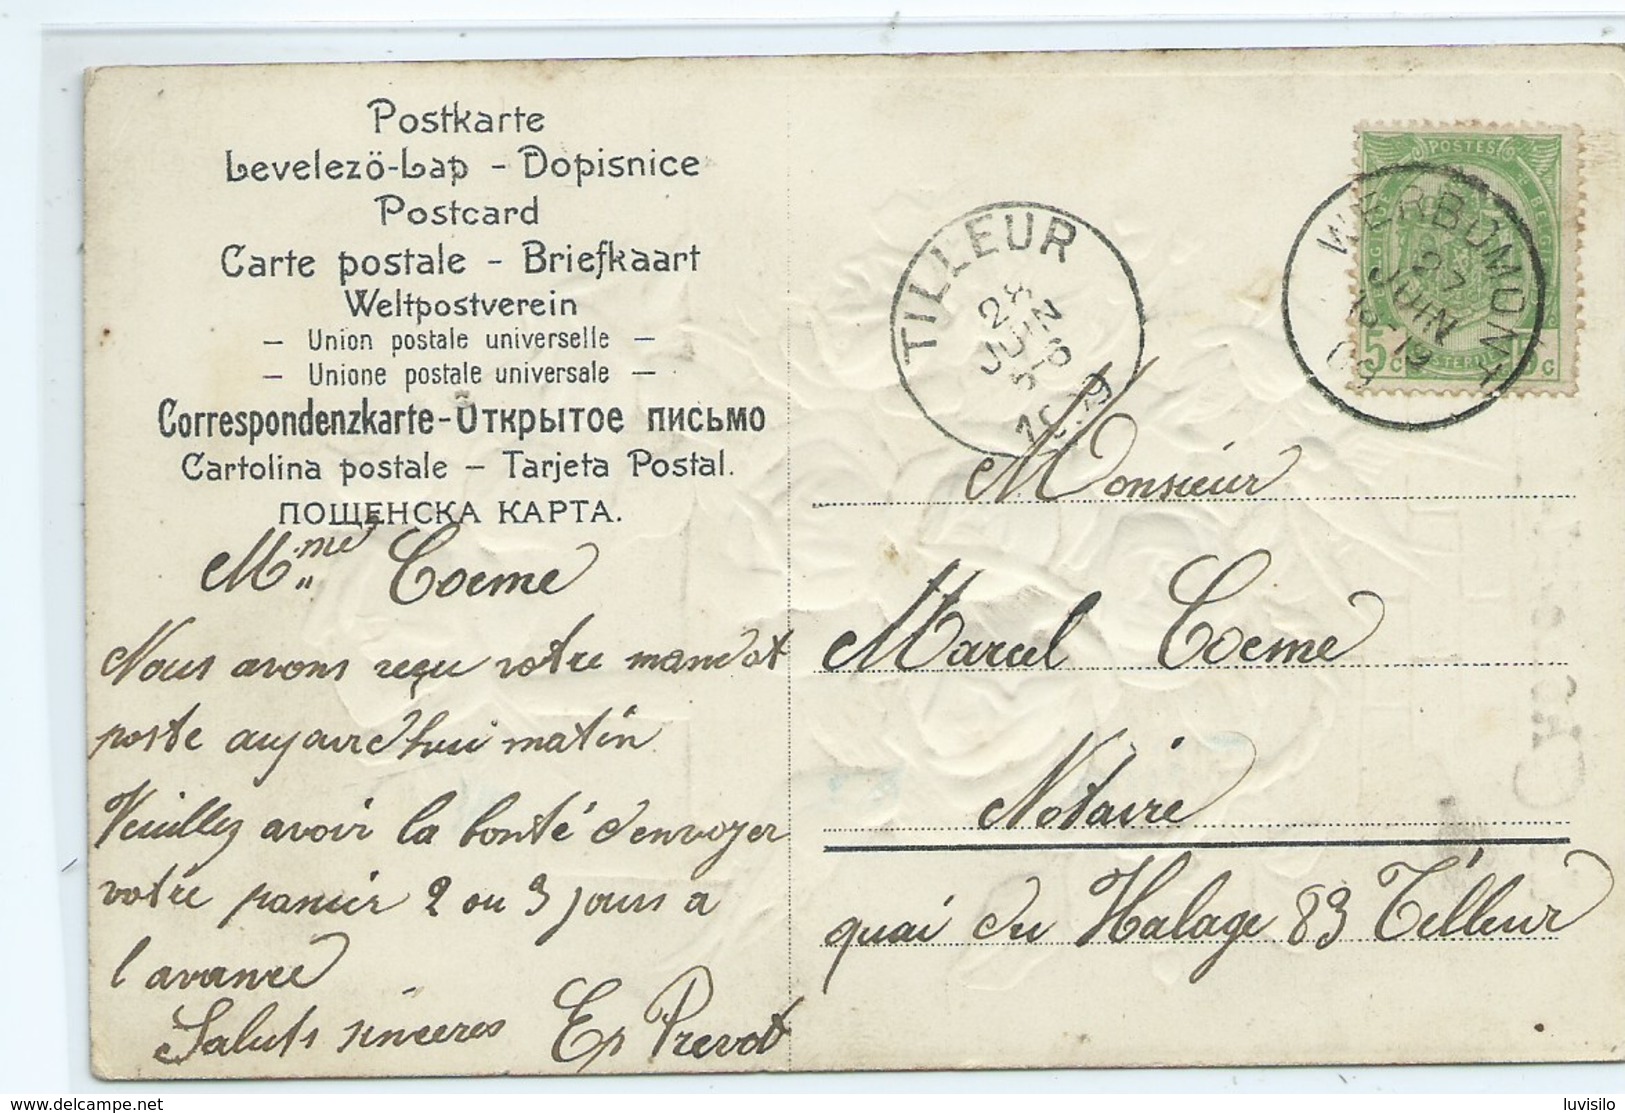 Postkarte
Levelező-Lap - Dopisnice
Postcard
Carte postale - Briefkaart
Weltpostverein
- Union postale universelle -
- Unione postale universale -
Correspondenzkarte-Открытое письмо
Cartolina postale - Tarjeta Postal.
ПОЩЕНСКА КАРТА.
Mme Coeme
Nous avons reçu votre mandat
poste aujourd'hui matin
Veuillez avoir la bonté d'envoyer
votre panier 2 ou 3 jours a
l'avance
Saluts sincères Ep Prevot
TILLEUR
28
JUIN
POSTES
BELGIQUE
WERBOMONT
27
JUIN
18-19
09
5 C 5 C
Monsieur
Marcel Coeme
Notaire
quai du Halage 83 Tilleur
delcampe.net
luvisilo